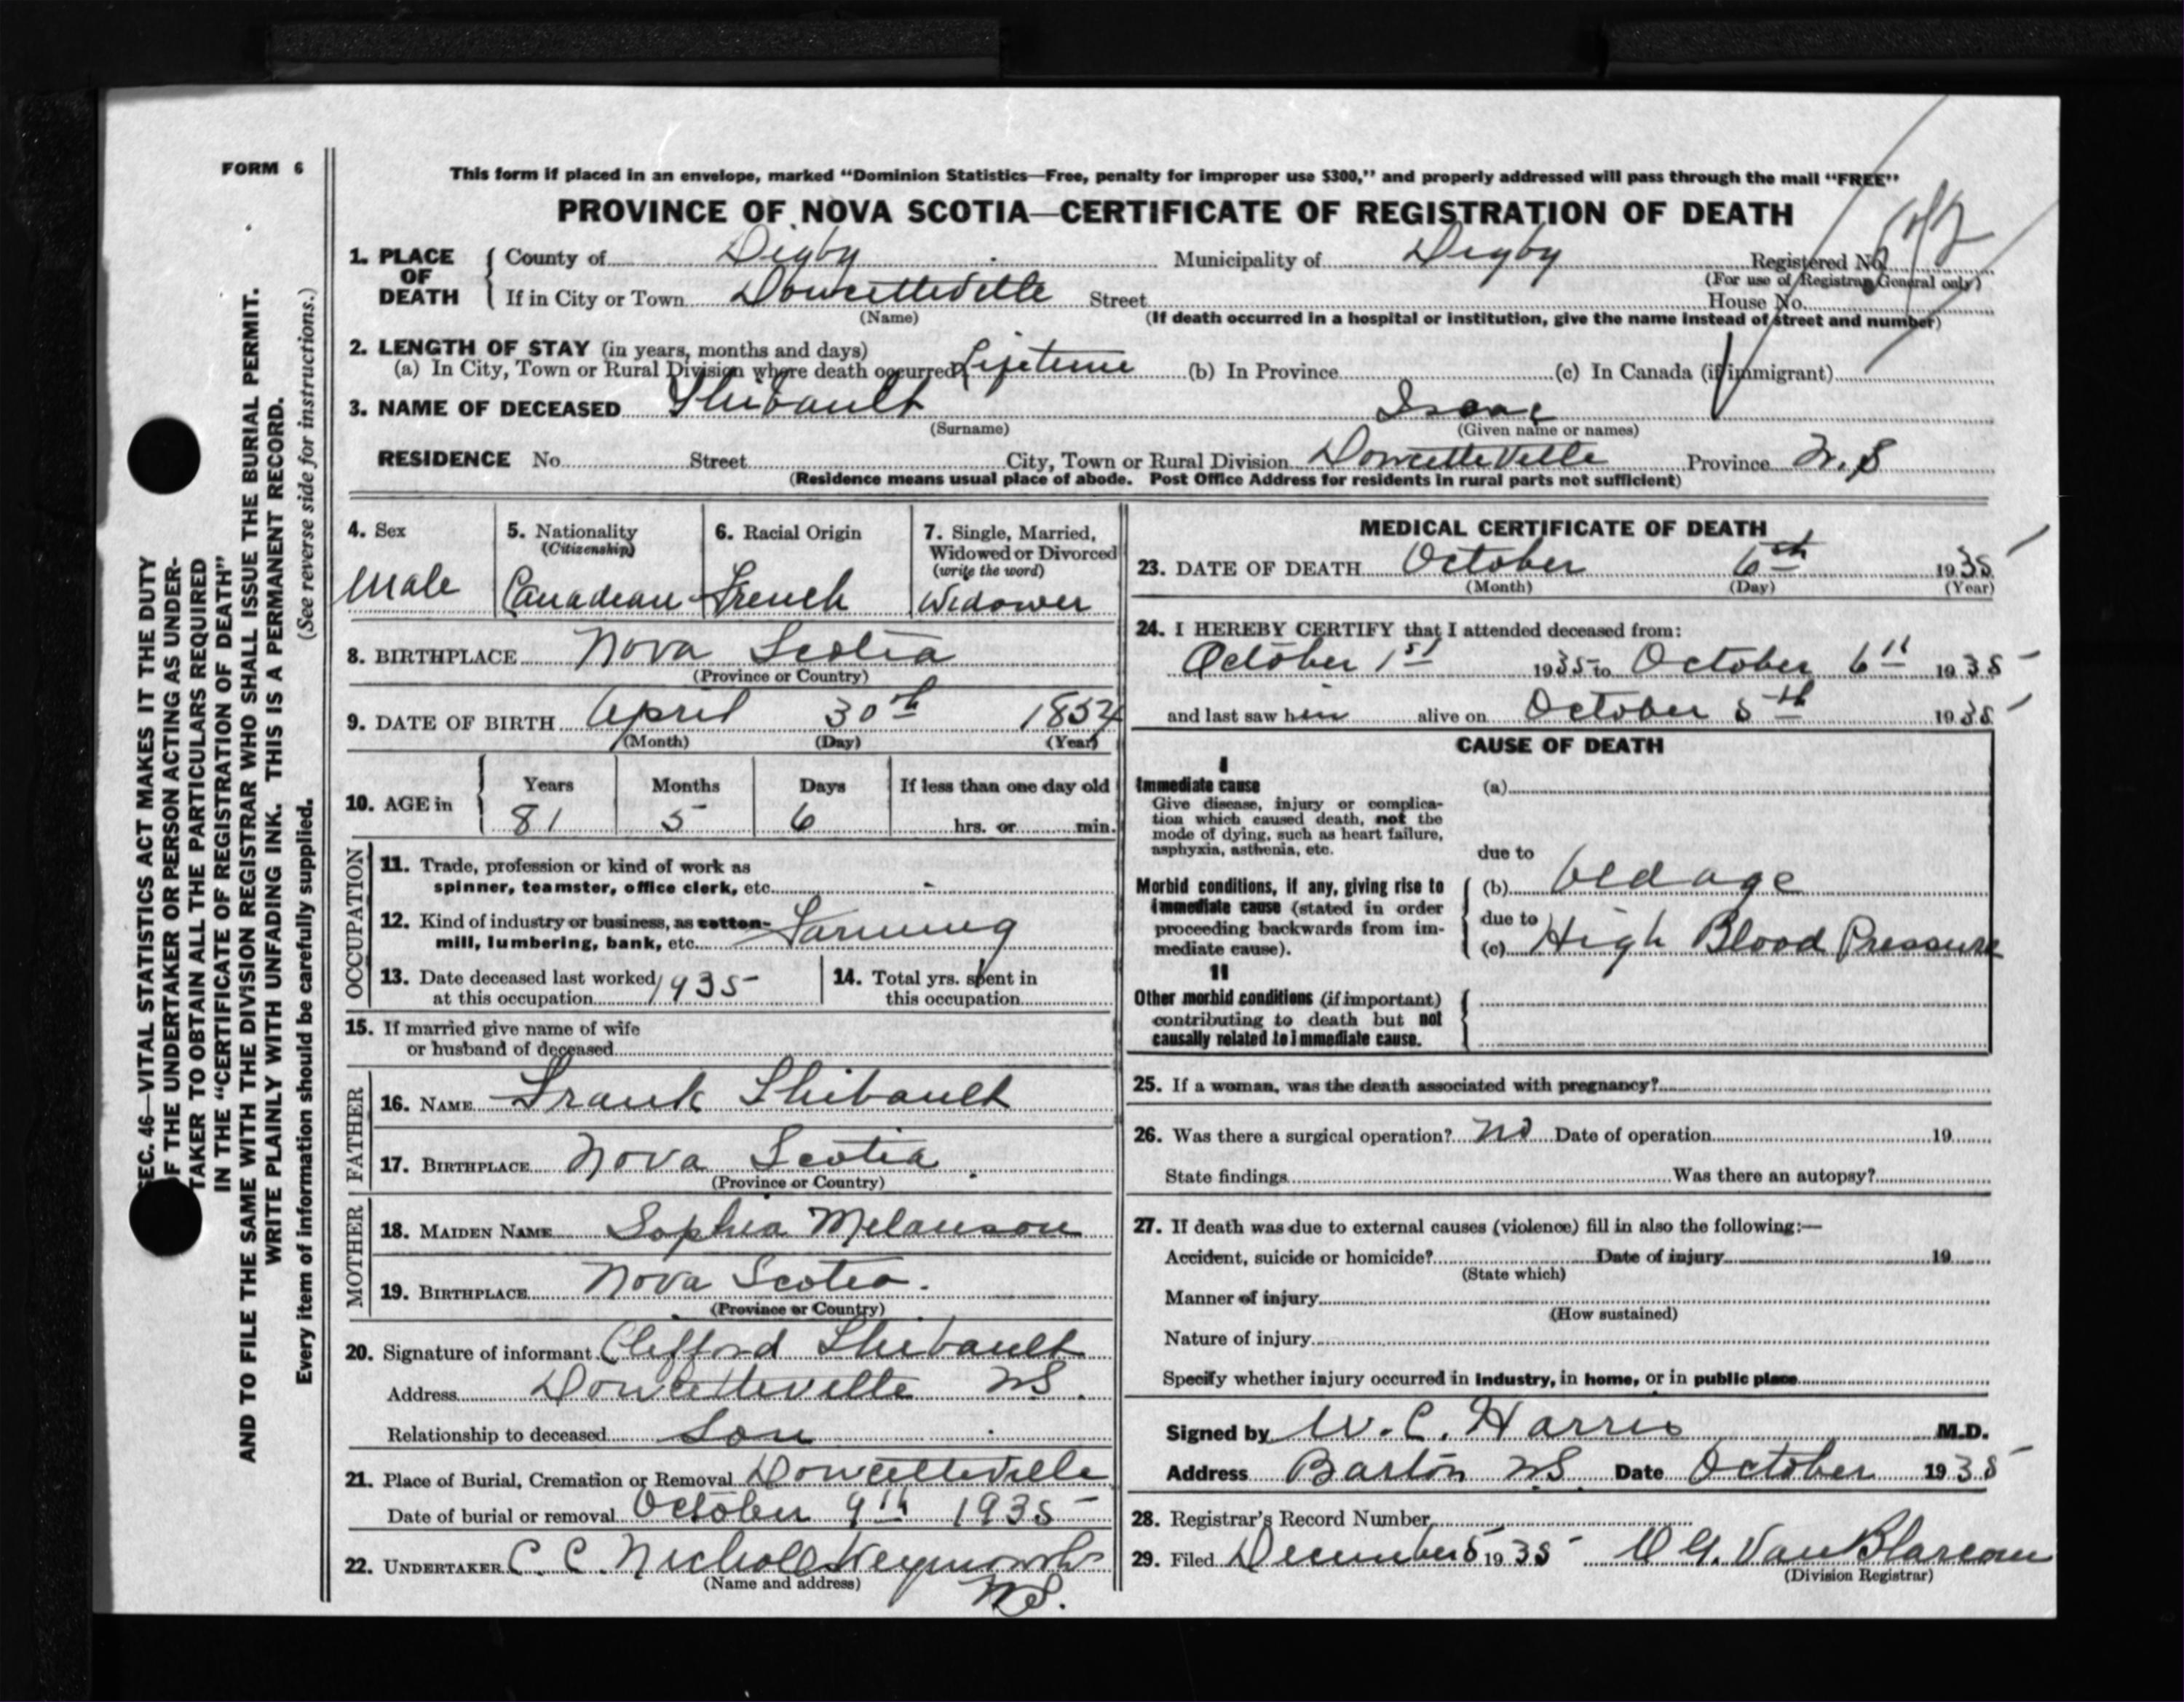 FORM 6
This form if placed in an envelope, marked “Dominion Statistics—Free, penalty for improper use $300,” and properly addressed will pass through the mail “FREE”
PROVINCE OF NOVA SCOTIA—CERTIFICATE OF REGISTRATION OF DEATH
1. PLACE OF DEATH County of Digby Municipality of Digby Registered No.
(For use of Registrar General only)
If in City or Town Dowcetteville Street House No.
(Name) (If death occurred in a hospital or institution, give the name instead of street and number)
2. LENGTH OF STAY (in years, months and days)
(a) In City, Town or Rural Division where death occurred Lifetime (b) In Province (c) In Canada (if immigrant)
3. NAME OF DECEASED Thibault Isaac
(Surname) (Given name or names)
RESIDENCE No. Street City, Town or Rural Division Dowcetteville Province N.S
(Residence means usual place of abode. Post Office Address for residents in rural parts not sufficient)
4. Sex
Male
5. Nationality
(Citizenship)
Canadian
6. Racial Origin
French
7. Single, Married,
Widowed or Divorced
(write the word)
Widower
8. BIRTHPLACE Nova Scotia
(Province or Country)
9. DATE OF BIRTH April 30th 1854
(Month) (Day) (Year)
10. AGE in Years Months Days If less than one day old
81 5 6 hrs. or min.
OCCUPATION
11. Trade, profession or kind of work as
spinner, teamster, office clerk, etc. -
12. Kind of industry or business, as cotton-
mill, lumbering, bank, etc. Farming
13. Date deceased last worked
at this occupation 1935
14. Total yrs. spent in
this occupation
15. If married give name of wife
or husband of deceased
FATHER
16. NAME Frank Thibault
17. BIRTHPLACE Nova Scotia
(Province or Country)
MOTHER
18. MAIDEN NAME Sophia Melanson
19. BIRTHPLACE Nova Scotia.
(Province or Country)
20. Signature of informant Clifford Thibault
Address Dowcetteville NS.
Relationship to deceased Son
21. Place of Burial, Cremation or Removal Dowcetteville
Date of burial or removal October 9th 1935
22. UNDERTAKER C. C. Nicholl Weymouth
(Name and address) NS.
MEDICAL CERTIFICATE OF DEATH
23. DATE OF DEATH October 6th 1935
(Month) (Day) (Year)
24. I HEREBY CERTIFY that I attended deceased from:
October 1st 1935 to October 6th 1935
and last saw him alive on October 5th 1935
CAUSE OF DEATH
I
Immediate cause (a)
Give disease, injury or complica-
tion which caused death, not the
mode of dying, such as heart failure,
asphyxia, asthenia, etc.
due to
Morbid conditions, if any, giving rise to
immediate cause (stated in order
proceeding backwards from im-
mediate cause).
(b) Old age
due to
(c) High Blood Pressure
II
Other morbid conditions (if important)
contributing to death but not
causally related to immediate cause.
25. If a woman, was the death associated with pregnancy?
26. Was there a surgical operation? No Date of operation 19
State findings Was there an autopsy?
27. If death was due to external causes (violence) fill in also the following:—
Accident, suicide or homicide? Date of injury 19
(State which)
Manner of injury
(How sustained)
Nature of injury
Specify whether injury occurred in industry, in home, or in public place
Signed by W. C. Harris M.D.
Address Barton NS. Date October 1935
28. Registrar's Record Number
29. Filed December 5 1935 VanBlarcom
(Division Registrar)
SEC. 46—VITAL STATISTICS ACT MAKES IT THE DUTY
OF THE UNDERTAKER OR PERSON ACTING AS UNDER-
TAKER TO OBTAIN ALL THE PARTICULARS REQUIRED
IN THE “CERTIFICATE OF REGISTRATION OF DEATH”
AND TO FILE THE SAME WITH THE DIVISION REGISTRAR WHO SHALL ISSUE THE BURIAL PERMIT.
WRITE PLAINLY WITH UNFADING INK. THIS IS A PERMANENT RECORD.
Every item of information should be carefully supplied. (See reverse side for instructions.)